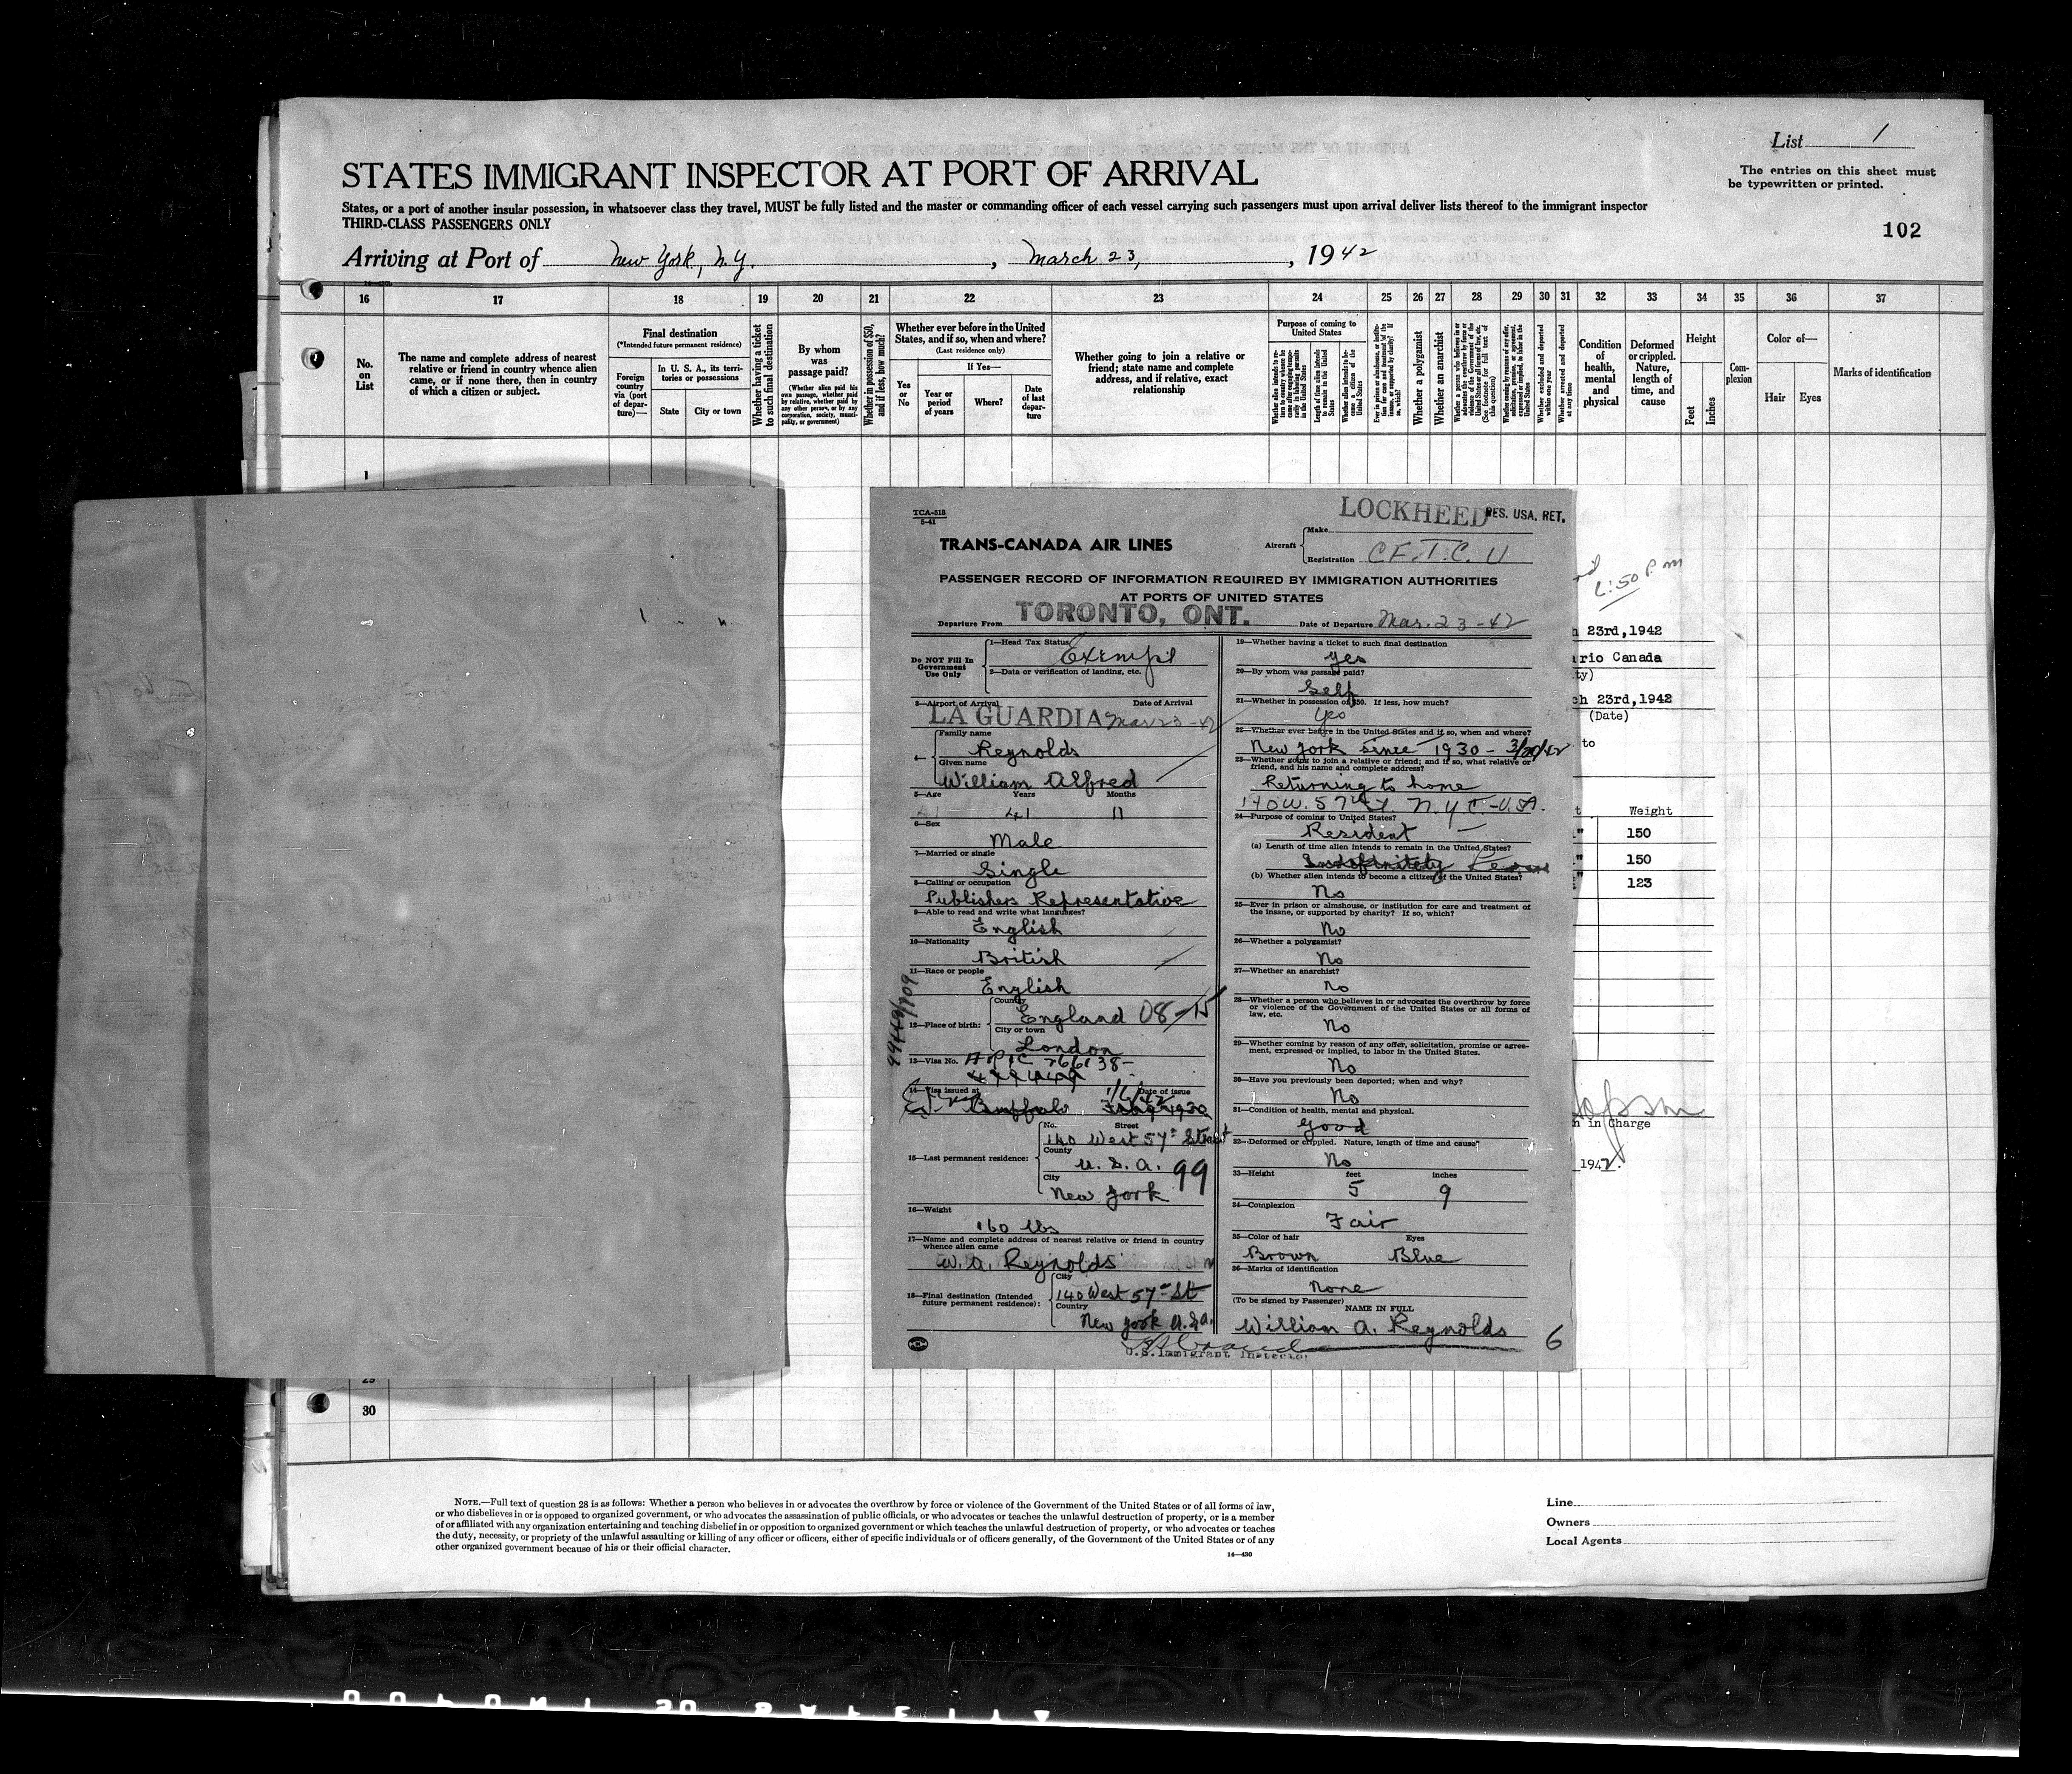 List 1
The entries on this sheet must
be typewritten or printed.
102
STATES IMMIGRANT INSPECTOR AT PORT OF ARRIVAL
States, or a port of another insular possession, in whatsoever class they travel, MUST be fully listed and the master or commanding officer of each vessel carrying such passengers must upon arrival deliver lists thereof to the immigrant inspector
THIRD-CLASS PASSENGERS ONLY
Arriving at Port of New York, N.Y. , March 23, , 1942
16 17 18 19 20 21 22 23 24 25 26 27 28 29 30 31 32 33 34 35 36 37
No. on List
The name and complete address of nearest
relative or friend in country whence alien
came, or if none there, then in country
of which a citizen or subject.
Final destination
(*Intended future permanent residence)
Foreign
country
via (port
of depar-
ture)—
In U. S. A., its terri-
tories or possessions
State
City or town
Whether having a ticket
to such final destination
By whom
was
passage paid?
(Whether alien paid his
own passage, whether paid
by relative, whether paid by
any other person, or by any
corporation, society, munici-
pality, or government)
Whether in possession of $50,
and if less, how much?
Whether ever before in the United
States, and if so, when and where?
(Last residence only)
Yes
or
No
If Yes—
Year or
period
of years
Where?
Date
of last
depar-
ture
Whether going to join a relative or
friend; state name and complete
address, and if relative, exact
relationship
Purpose of coming to
United States
Whether a polygamist
Whether an anarchist
Condition
of
health,
mental
and
physical
Deformed
or crippled.
Nature,
length of
time, and
cause
Height
Feet
Inches
Com-
plexion
Color of—
Hair
Eyes
Marks of identification
1
TCA-518
5-41
LOCKHEED
RES. USA. RET.
TRANS-CANADA AIR LINES
Aircraft
Make
Registration CF.T.C.U
PASSENGER RECORD OF INFORMATION REQUIRED BY IMMIGRATION AUTHORITIES
AT PORTS OF UNITED STATES
Departure From TORONTO, ONT. Date of Departure Mar. 23-42
Do NOT Fill In
Government
Use Only
1—Head Tax Status Exempt
2—Data or verification of landing, etc.
3—Airport of Arrival Date of Arrival
LA GUARDIA Mar 23-42
4—
Family name
Reynolds
Given name
William Alfred
5—Age Years Months
41 11
6—Sex
Male
7—Married or single
Single
8—Calling or occupation
Publishers Representative
9—Able to read and write what languages?
English
10—Nationality
British
11—Race or people
English
12—Place of birth:
Country
England 08-15
City or town
London
13—Visa No.
14—Visa issued at Date of issue
Buffalo
15—Last permanent residence:
No. Street
140 West 57th Street
County
U.S.A. 99
City
New York
16—Weight
160 lbs
17—Name and complete address of nearest relative or friend in country
whence alien came
W. A. Reynolds
18—Final destination (Intended
future permanent residence):
City
140 West 57th St
Country
New York U.S.A.
19—Whether having a ticket to such final destination
Yes
20—By whom was passage paid?
Self
21—Whether in possession of $50. If less, how much?
Yes
22—Whether ever before in the United States and if so, when and where?
New York since 1930 - 3/20/42
23—Whether going to join a relative or friend; and if so, what relative or
friend, and his name and complete address?
Returning to home
140 W. 57th St N.Y.C.-U.S.A.
24—Purpose of coming to United States?
Resident
(a) Length of time alien intends to remain in the United States?
Indefinitely
(b) Whether alien intends to become a citizen of the United States?
No
25—Ever in prison or almshouse, or institution for care and treatment of
the insane, or supported by charity? If so, which?
No
26—Whether a polygamist?
No
27—Whether an anarchist?
No
28—Whether a person who believes in or advocates the overthrow by force
or violence of the Government of the United States or all forms of
law, etc.
No
29—Whether coming by reason of any offer, solicitation, promise or agree-
ment, expressed or implied, to labor in the United States.
No
30—Have you previously been deported; when and why?
No
31—Condition of health, mental and physical.
Good
32—Deformed or crippled. Nature, length of time and cause
No
33—Height feet inches
5 9
34—Complexion
Fair
35—Color of hair Eyes
Brown Blue
36—Marks of identification
None
(To be signed by Passenger)
NAME IN FULL
William A. Reynolds
6
U.S. Immigrant Inspector
50 P m
23rd, 1942
rio Canada
ty)
ch 23rd, 1942
(Date)
to
Weight
150
150
123
n in Charge
1942.
30
NOTE.—Full text of question 28 is as follows: Whether a person who believes in or advocates the overthrow by force or violence of the Government of the United States or of all forms of law,
or who disbelieves in or is opposed to organized government, or who advocates the assassination of public officials, or who advocates or teaches the unlawful destruction of property, or is a member
of or affiliated with any organization entertaining and teaching disbelief in or opposition to organized government or which teaches the unlawful destruction of property, or who advocates or teaches
the duty, necessity, or propriety of the unlawful assaulting or killing of any officer or officers, either of specific individuals or of officers generally, of the Government of the United States or of any
other organized government because of his or their official character.
14—430
Line
Owners
Local Agents